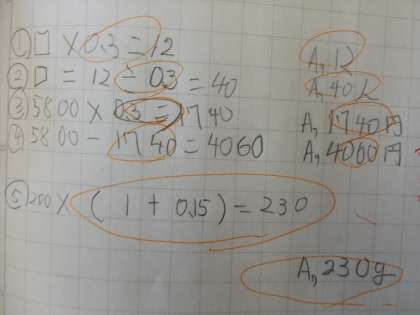 ① □ × 0.3 = 12 A, 12
② □ = 12 ÷ 0.3 = 40 A, 40人
③ 5800 × 0.3 = 1740 A, 1740円
④ 5800 - 1740 = 4060 A, 4060円
⑤ 200 × (1 + 0.15) = 230
A, 230g